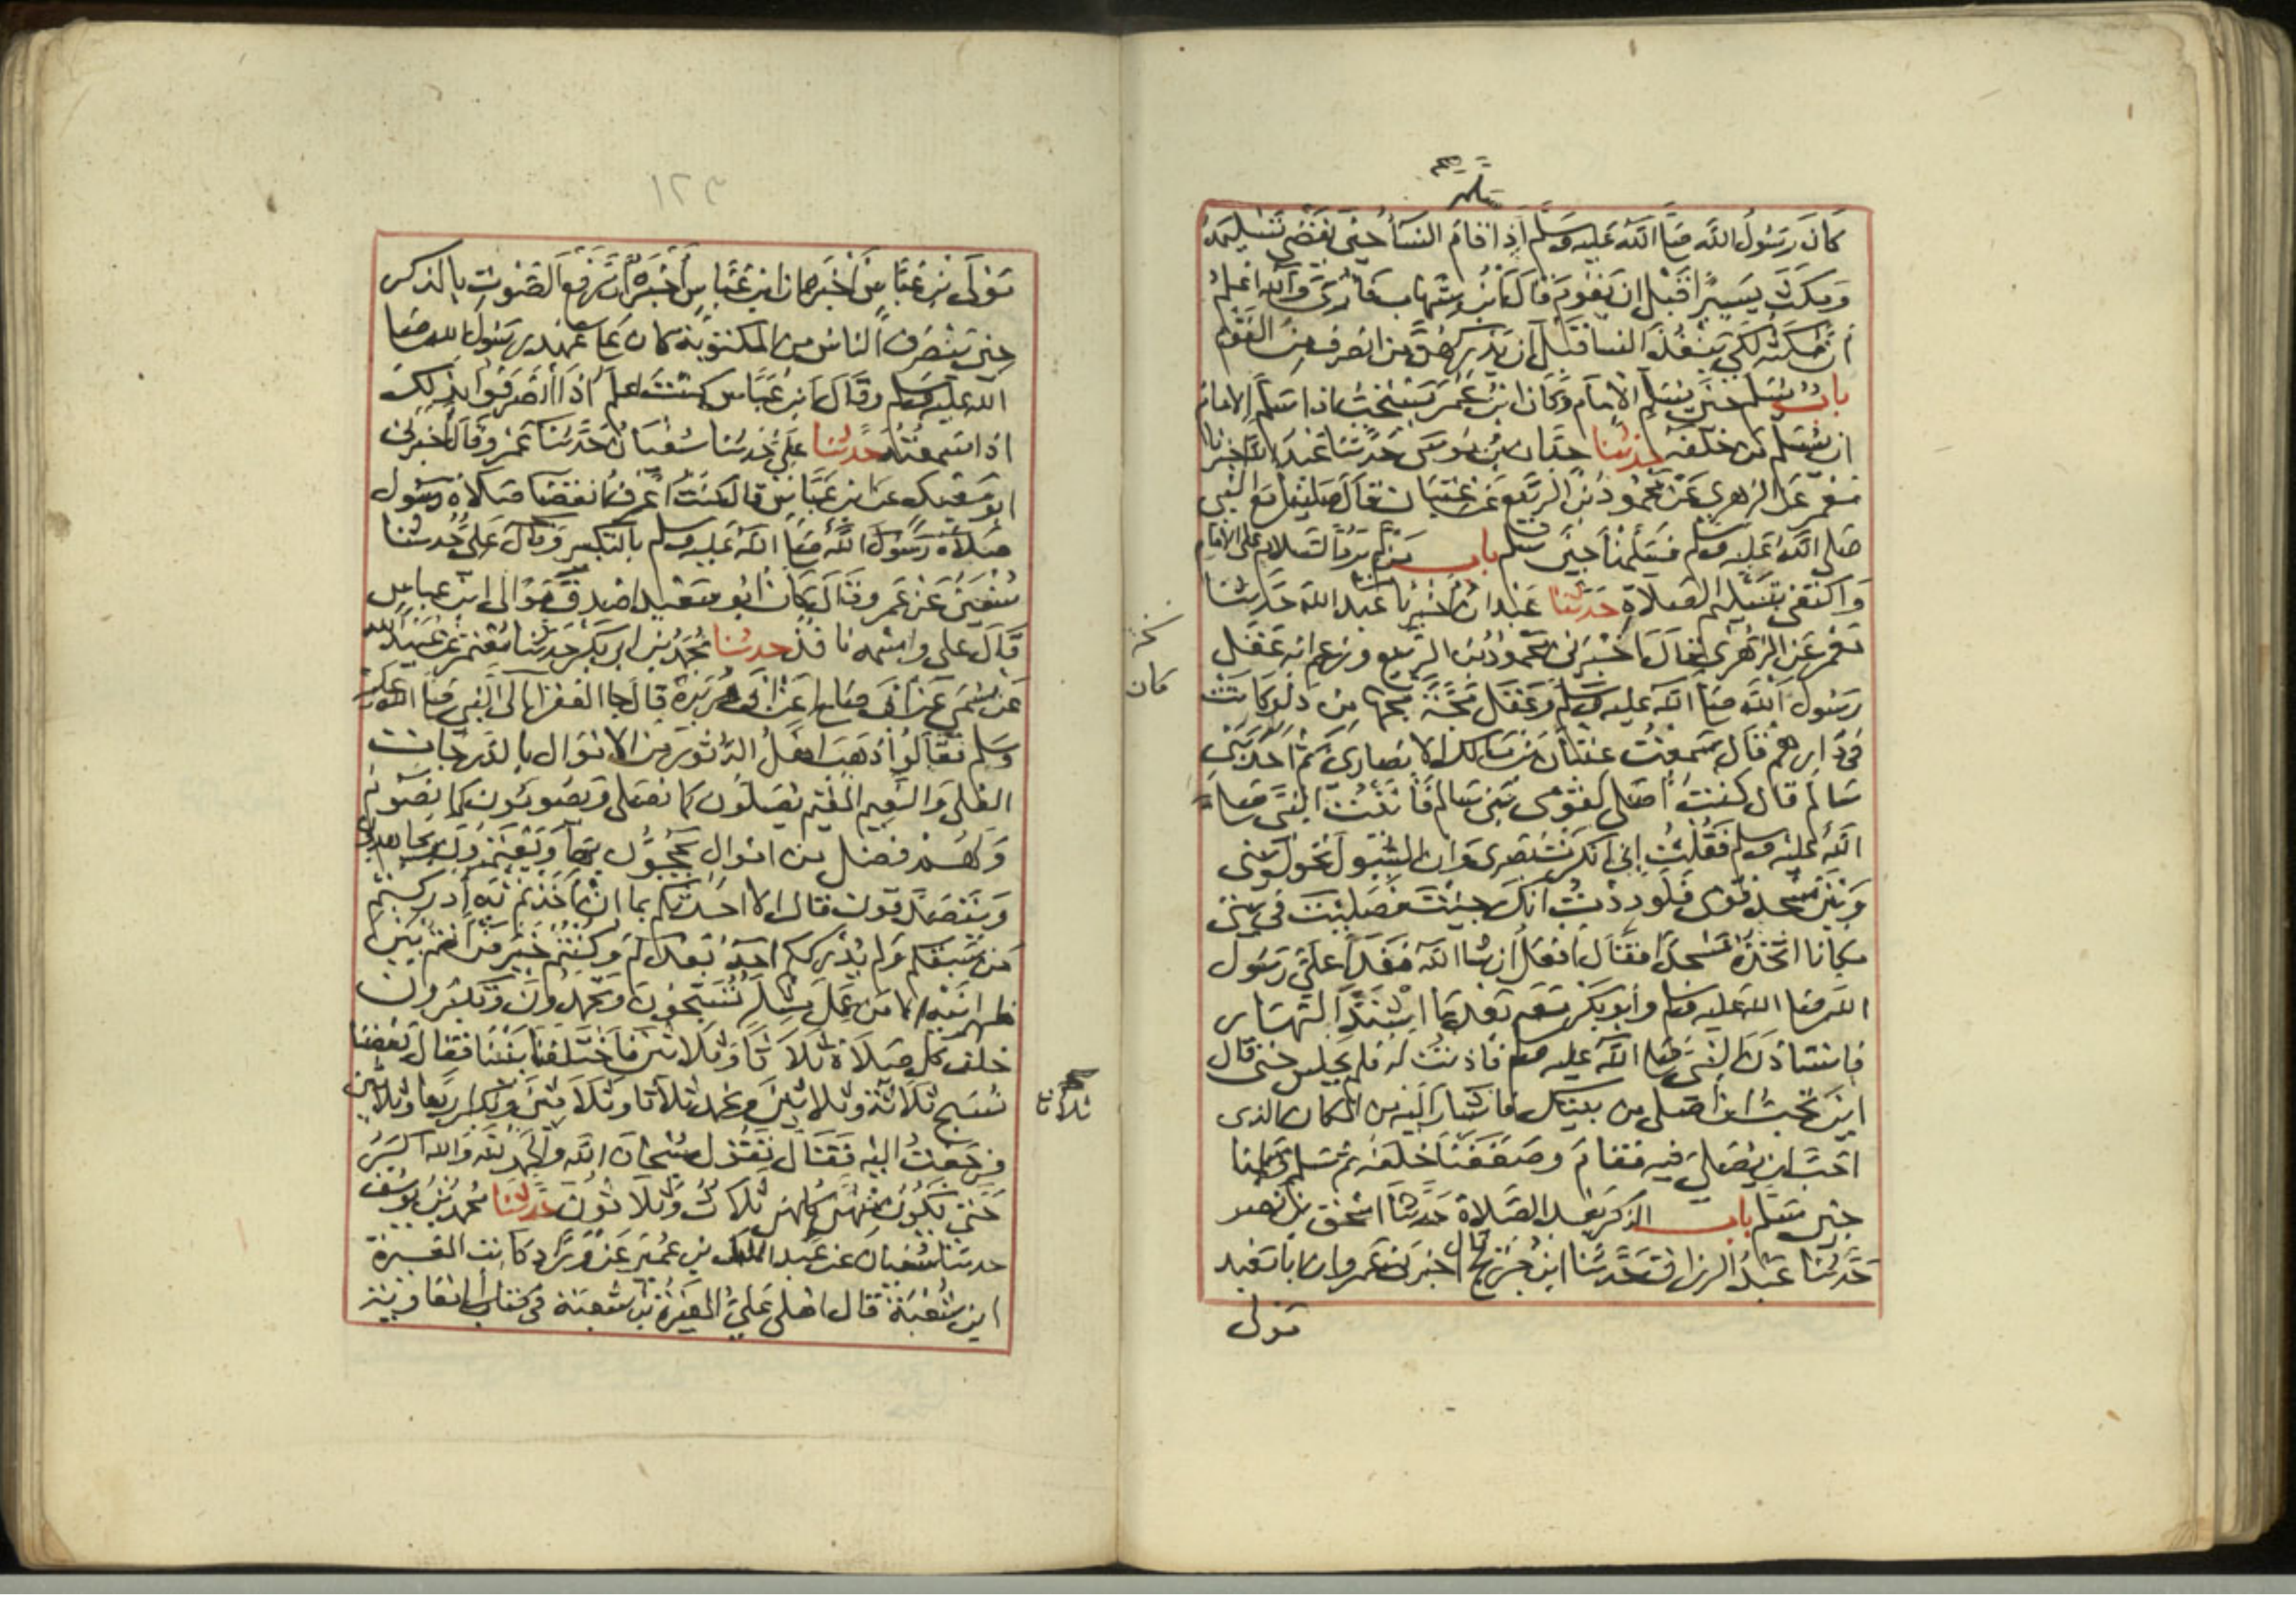 سلم
كان رسول الله صلى الله عليه وسلم اذا قام النسا حين يقضى تسليمه
ومكث يسيرا قبل ان يقوم قال ابن شهاب فارى والله اعلم
ان مكثه لكي ينفذ النسا قبل ان يدركهن من انصرف من القوم
باب يسلم حين يسلم الامام وكان ابن عمر يستحب اذا سلم الامام
ان يسلم من خلفه حدثنا حبان بن موسى حدثنا عبد الله اخبرنا
معمر عن الزهري عن محمود بن الربيع عن عتبان قال صلينا مع النبي
صلى الله عليه وسلم فسلمنا حين سلم باب من لم يرد السلام على الامام
واكتفى بتسليم الصلاة حدثنا عبدان اخبرنا عبد الله حدثنا
معمر عن الزهري قال اخبرني محمود بن الربيع وزعم انه عقل
رسول الله صلى الله عليه وسلم وعقل مجة مجها من دلو كانت
في دارهم قال سمعت عتبان بن مالك الانصاري ثم احد بني
سالم قال كنت اصلي لقومى بنى سالم فاتيت النبى صلى
الله عليه وسلم فقلت انى انكرت بصرى وان السيول تحول بينى
وبين مسجد قومى فلوددت انك جئت فصليت في بيتى
مكانا اتخذه مسجدا فقال افعل ان شا الله فغدا علي رسول
الله صلى الله عليه وسلم وابو بكر معه بعد ما اشتد النهار
فاستاذن النبي صلى الله عليه وسلم فاذنت له فلم يجلس حتى قال
اين تحب ان اصلي من بيتك فاشار اليه من المكان الذى
احب ان يصلي فيه فقام وصففنا خلفه ثم سلم وسلمنا
حين سلم باب الذكر بعد الصلاة حدثنا اسحق بن نصر
حدثنا عبد الرزاق حدثنا ابن جريج قال اخبرني عمرو ان ابا معبد
مولى
نخة
كان
١٢٣
مولى بن عباس اخبره ان ابن عباس اخبره ان رفع الصوت بالذكر
حين ينصرف الناس من المكتوبة كان على عهد رسول الله صلى
الله عليه وسلم وقال ابن عباس كنت اعلم اذا انصرفوا بذلك
اذا سمعته حدثنا علي حدثنا سفيان حدثنا عمرو قال اخبرني
ابو معبد عن ابن عباس قال كنت اعرف انقضا صلاة رسول
صلاة رسول الله صلى الله عليه وسلم بالتكبير وقال علي حدثنا
سفين عن عمرو قال كان ابو معبد اصدق موالى ابن عباس
قال على واسمه نافذ حدثنا محمد بن ابى بكر حدثنا معتمر عن عبيد الله
عن سمي عن ابى صالح عن ابى هريرة قال جا الفقرا الى النبي صلى الله عليه
وسلم فقالوا ذهب اهل الدثور من الاموال بالدرجات
العلى والنعيم المقيم يصلون كما نصلى ويصومون كما نصوم
ولهم فضل من اموال يحجون بها ويعتمرون ويجاهدون
ويتصدقون قال الا احدثكم بما ان اخذتم به ادركتم
من سبقكم ولم يدرككم احد بعدكم وكنتم خير من انتم بين
ظهرانيه الا من عمل مثله تسبحون وتحمدون وتكبرون
خلف كل صلاة ثلاثا وثلاثين فاختلفنا بيننا فقال بعضنا
نسبح ثلاثة وثلاثين ونحمد ثلاثا وثلاثين ونكبر اربعا وثلاثين
فرجعت اليه فقال تقول سبحان الله والحمد لله والله اكبر
حتى يكون منهن كلهن ثلاث وثلاثون حدثنا محمد بن يوسف
حدثنا سفيان عن عبد الملك بن عمير عن وراد كاتب المغيرة
ابن شعبة قال املى علي المغيرة بن شعبة في كتاب الى معاوية
ثلاثا